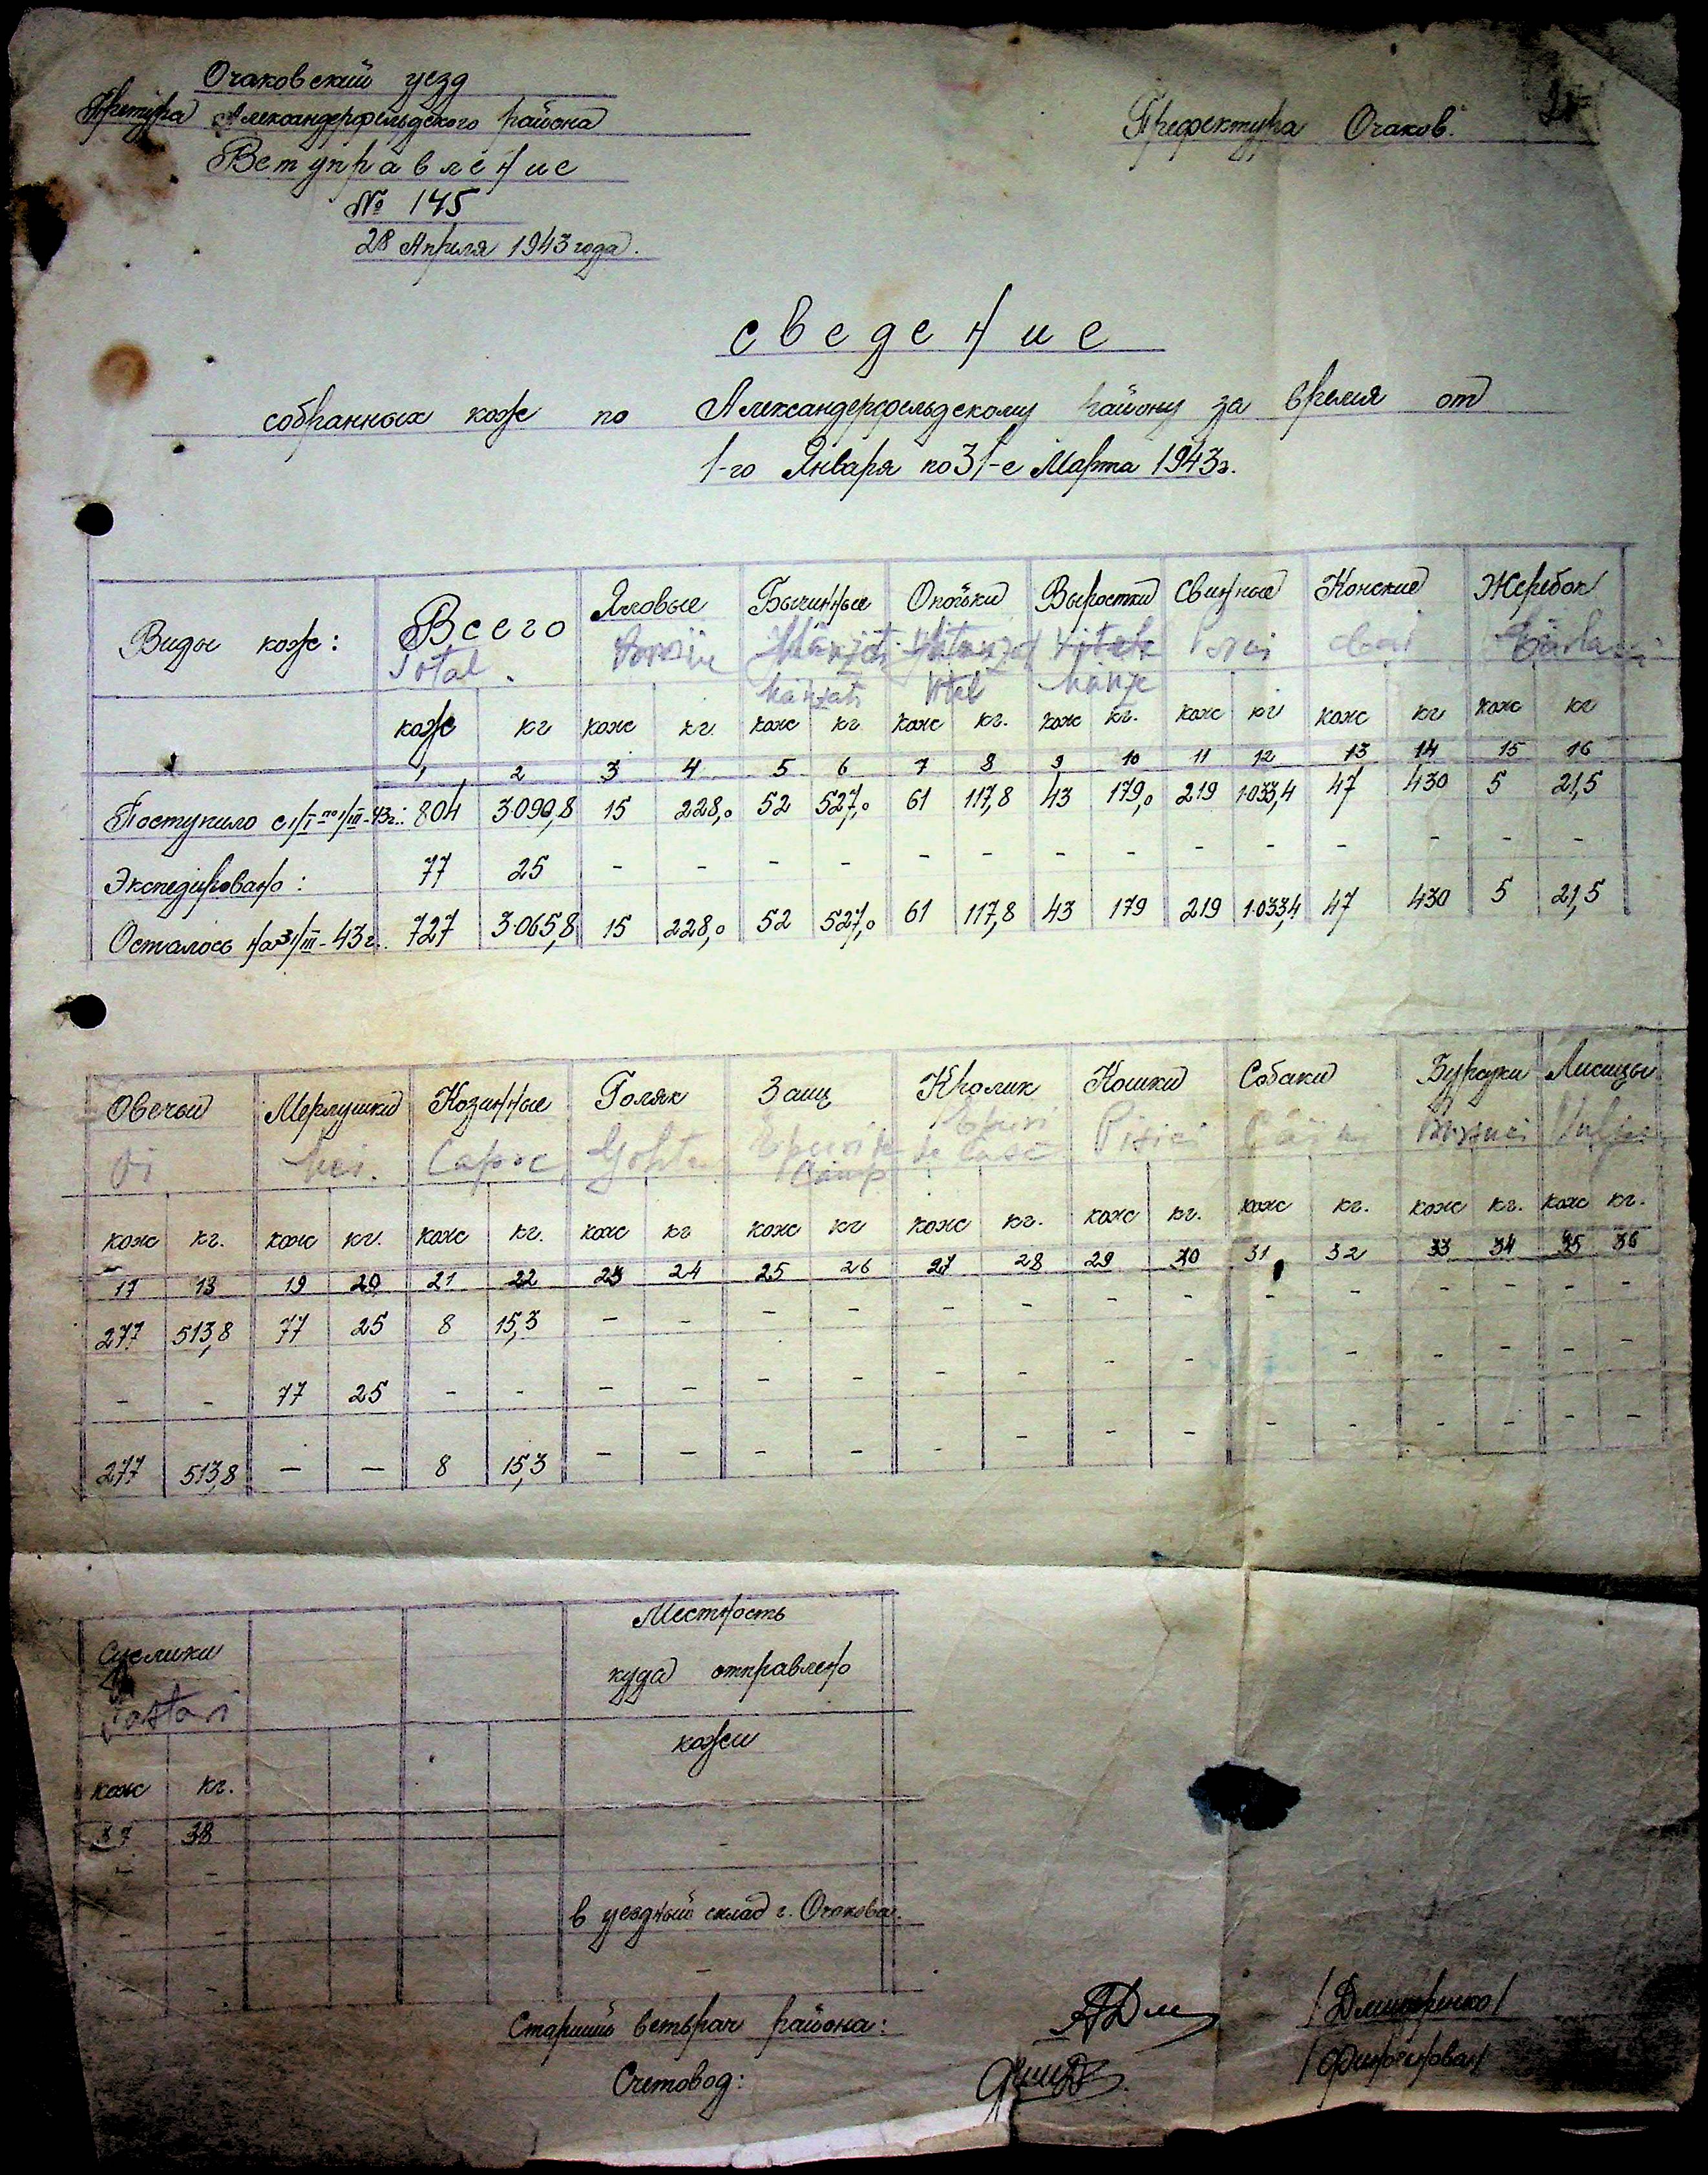 Очаковский уезд
Претура Александерфельдского района
Ветуправление
№ 145
28 Апреля 1943 года.
Префектура Очаков.
сведение
собранных кож по Александерфельдскому району за время от
1-го Января по 31-е Марта 1943г.
Виды кож: Всего Яловые Бычинные Опойки Выростки Свинные Конские Жеребок
Total Mânzati Porci cai
mânzati vitel mânz
кож кг кож кг. кож кг кож кг. кож кг. кож кг кож кг кож кг
1 2 3 4 5 6 7 8 9 10 11 12 13 14 15 16
Поступило с 1/I по 1/III-43г.: 804 3·090,8 15 228,0 52 527,0 61 117,8 43 179,0 219 1033,4 47 430 5 21,5
Экспедировано: 77 25 - - - - - - - - - - - - - -
Осталось на 31/III-43г. 727 3·065,8 15 228,0 52 527,0 61 117,8 43 179 219 1·033,4 47 430 5 21,5
Овечьи Мерлушки Козинные Голяк Заиц Кролик Кошки Собаки Бурсуки Лисицы
Oi Miei. Capre Epuri de Epuri Pisici Câini Bursuci Vulpi
câmp de casă
кож кг. кож кг. кож кг. кож кг кож кг кож кг. кож кг. кож кг. кож кг. кож кг.
17 18 19 20 21 22 23 24 25 26 27 28 29 30 31 32 33 34 35 36
277 513,8 77 25 8 15,3 - - - - - - - - - - - - - -
- - 77 25 - - - - - - - - - - - - - - - -
277 513,8 - - 8 15,3 - - - - - - - - - - - - - -
Суслики Местность
куда отправлено
кожи
кож кг.
37 38
- - -
- - в уездный склад г. Очакова.
- - -
Старший ветврач района: /Дмитренко/
Счетовод: